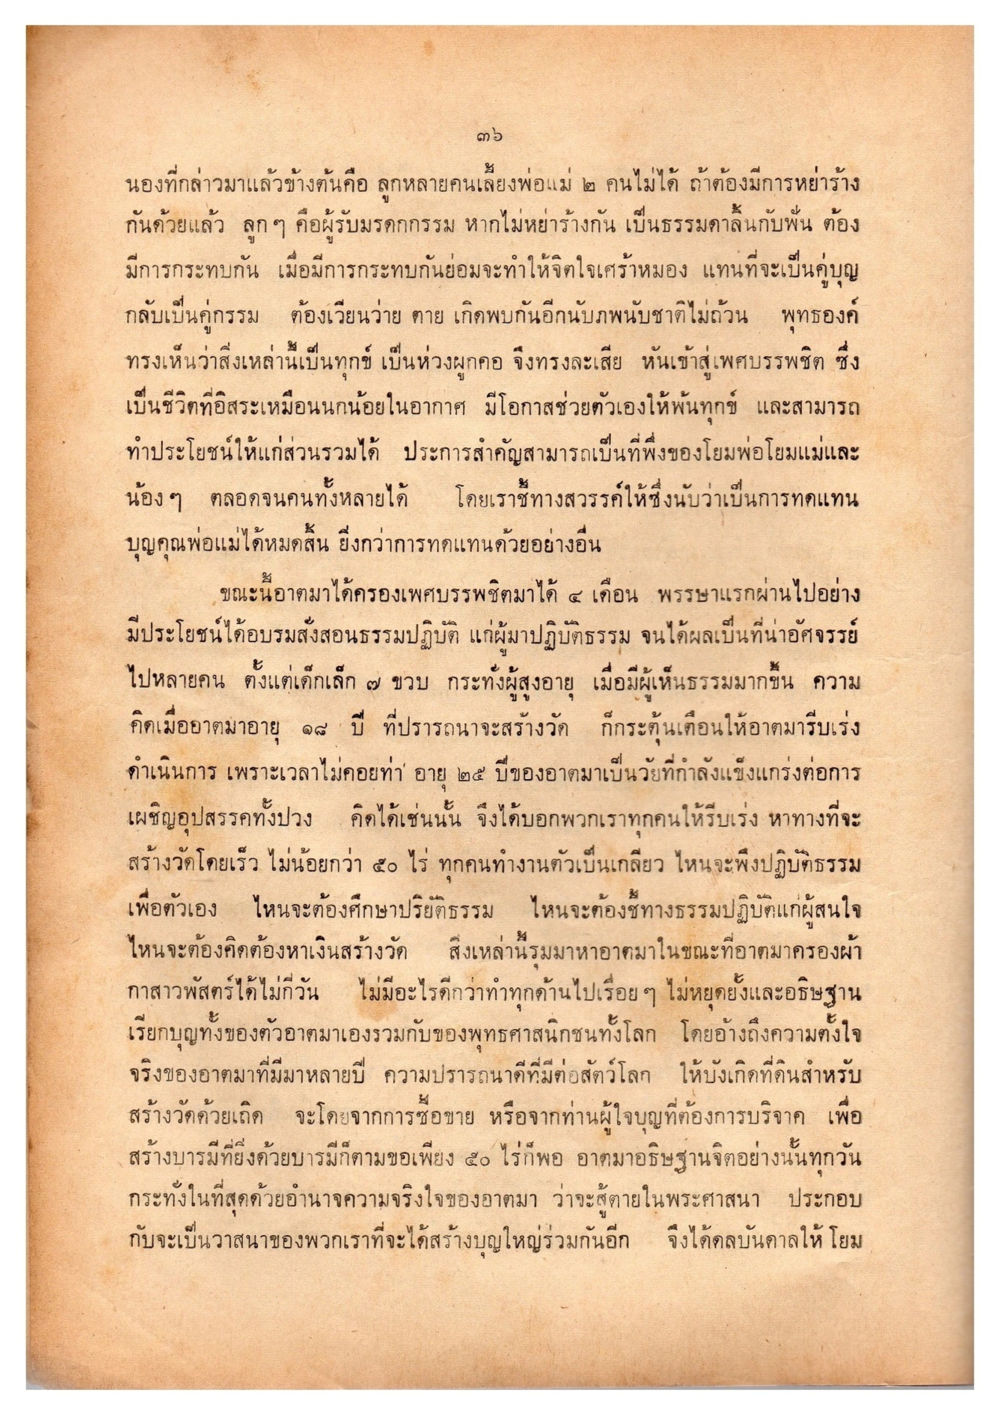 ๓๖
นองที่กล่าวมาแล้วข้างต้นคือ ลูกหลายคนเลี้ยงพ่อแม่ ๒ คนไม่ได้ ถ้าต้องมีการหย่าร้าง
กันด้วยแล้ว ลูก ๆ คือผู้รับมรดกกรรม หากไม่หย่าร้างกัน เป็นธรรมดาลิ้นกับฟัน ต้อง
มีการกระทบกัน เมื่อมีการกระทบกันย่อมจะทำให้จิตใจเศร้าหมอง แทนที่จะเป็นคู่บุญ
กลับเป็นคู่กรรม ต้องเวียนว่าย ตาย เกิดพบกันอีกนับภพนับชาติไม่ถ้วน พุทธองค์
ทรงเห็นว่าสิ่งเหล่านี้เป็นทุกข์ เป็นห่วงผูกคอ จึงทรงละเสีย หันเข้าสู่เพศบรรพชิต ซึ่ง
เป็นชีวิตที่อิสระเหมือนนกน้อยในอากาศ มีโอกาสช่วยตัวเองให้พ้นทุกข์ และสามารถ
ทำประโยชน์ให้แก่ส่วนรวมได้ ประการสำคัญสามารถเป็นที่พึ่งของโยมพ่อโยมแม่และ
น้อง ๆ ตลอดจนคนทั้งหลายได้ โดยเราชี้ทางสวรรค์ให้ซึ่งนับว่าเป็นการทดแทน
บุญคุณพ่อแม่ได้หมดสิ้น ยิ่งกว่าการทดแทนด้วยอย่างอื่น
ขณะนี้อาตมาได้ครองเพศบรรพชิตมาได้ ๔ เดือน พรรษาแรกผ่านไปอย่าง
มีประโยชน์ได้อบรมสั่งสอนธรรมปฏิบัติ แก่ผู้มาปฏิบัติธรรม จนได้ผลเป็นที่น่าอัศจรรย์
ไปหลายคน ตั้งแต่เด็กเล็ก ๗ ขวบ กระทั่งผู้สูงอายุ เมื่อมีผู้เห็นธรรมมากขึ้น ความ
คิดเมื่ออาตมาอายุ ๑๘ ปี ที่ปรารถนาจะสร้างวัด ก็กระตุ้นเตือนให้อาตมารีบเร่ง
ดำเนินการ เพราะเวลาไม่คอยท่า อายุ ๒๕ ปีของอาตมาเป็นวัยที่กำลังแข็งแกร่งต่อการ
เผชิญอุปสรรคทั้งปวง คิดได้เช่นนั้น จึงได้บอกพวกเราทุกคนให้รีบเร่ง หาทางที่จะ
สร้างวัดโดยเร็ว ไม่น้อยกว่า ๕๐ ไร่ ทุกคนทำงานตัวเป็นเกลียว ไหนจะพึงปฏิบัติธรรม
เพื่อตัวเอง ไหนจะต้องศึกษาปริยัติธรรม ไหนจะต้องชี้ทางธรรมปฏิบัติแก่ผู้สนใจ
ไหนจะต้องคิดต้องหาเงินสร้างวัด สิ่งเหล่านี้รุมมาหาอาตมาในขณะที่อาตมาครองผ้า
กาสาวพัสตร์ได้ไม่กี่วัน ไม่มีอะไรดีกว่าทำทุกด้านไปเรื่อย ๆ ไม่หยุดยั้งและอธิษฐาน
เรียกบุญทั้งของตัวอาตมาเองรวมกับของพุทธศาสนิกชนทั้งโลก โดยอ้างถึงความตั้งใจ
จริงของอาตมาที่มีมาหลายปี ความปรารถนาดีที่มีต่อสัตว์โลก ให้บังเกิดที่ดินสำหรับ
สร้างวัดด้วยเถิด จะโดยจากการซื้อขาย หรือจากท่านผู้ใจบุญที่ต้องการบริจาค เพื่อ
สร้างบารมีที่ยิ่งด้วยบารมีก็ตามขอเพียง ๕๐ ไร่ก็พอ อาตมาอธิษฐานจิตอย่างนั้นทุกวัน
กระทั่งในที่สุดด้วยอำนาจความจริงใจของอาตมา ว่าจะสู้ตายในพระศาสนา ประกอบ
กับจะเป็นวาสนาของพวกเราที่จะได้สร้างบุญใหญ่ร่วมกันอีก จึงได้ดลบันดาลให้ โยม